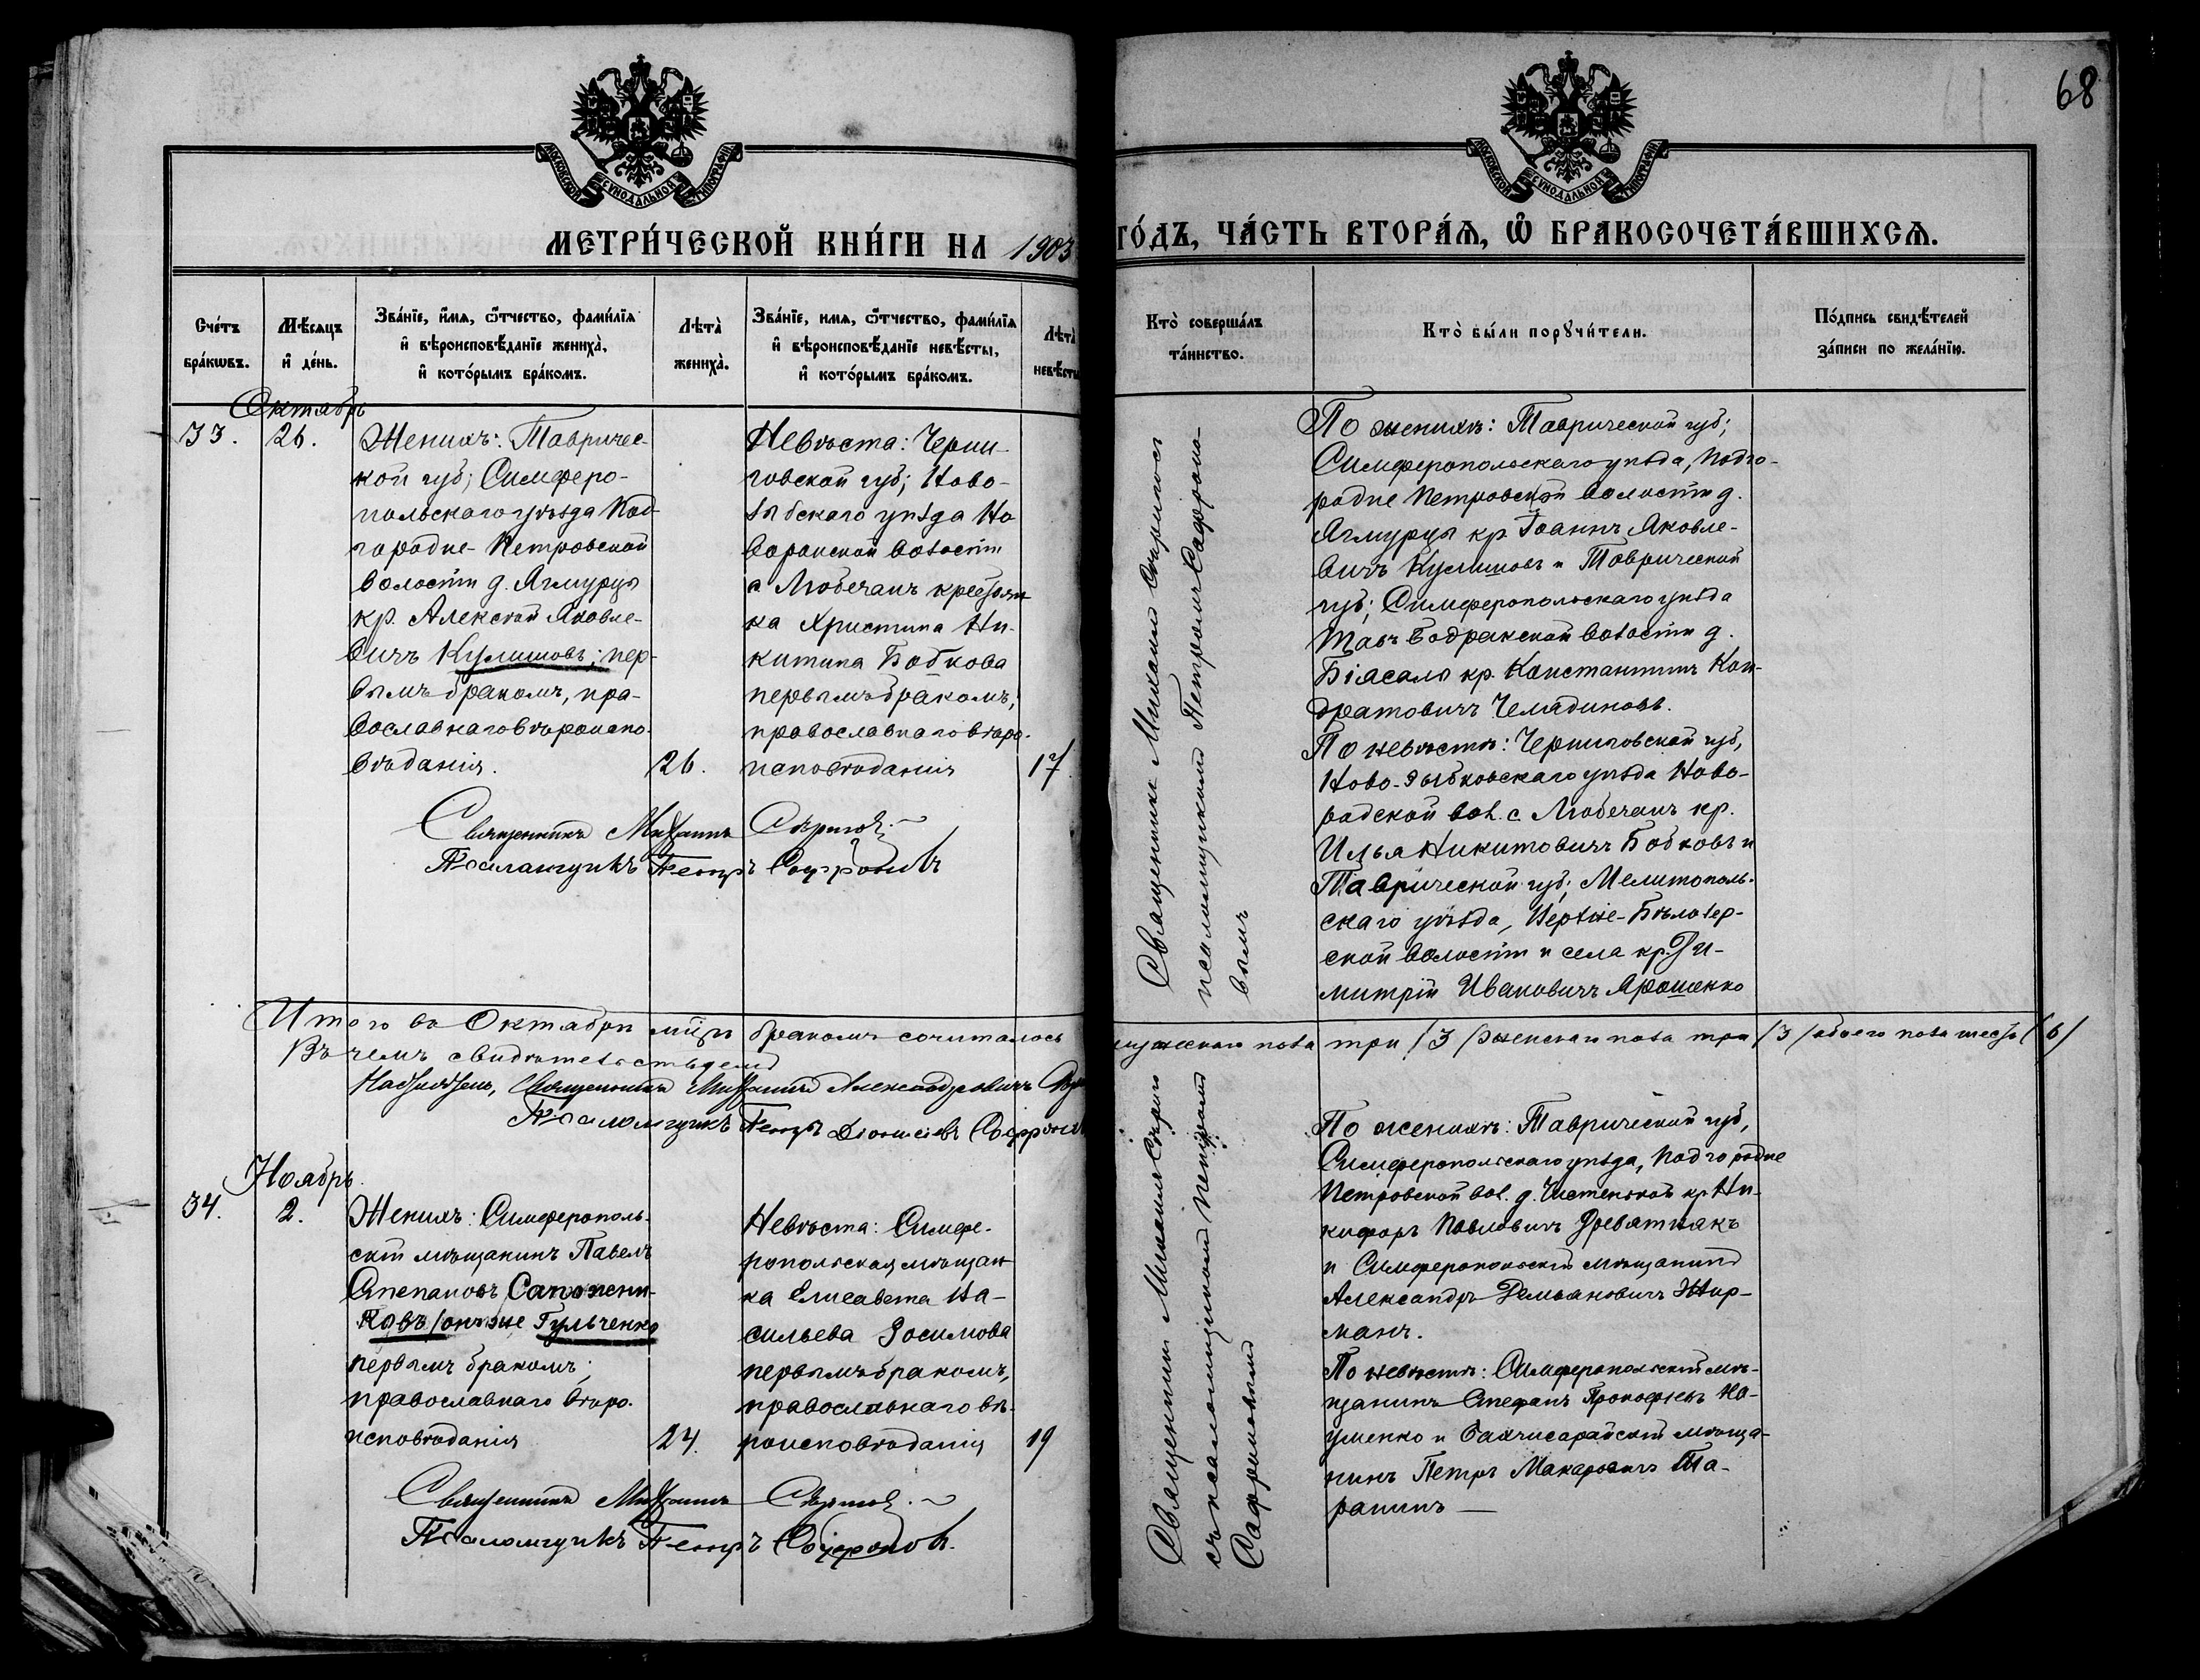 68
МОСКОВСКОЙ СѴНОДАЛЬНОЙ ТИПОГРАФІИ
МОСКОВСКОЙ СѴНОДАЛЬНОЙ ТИПОГРАФІИ
МЕТРИ́ЧЕСКОЙ КНИ́ГИ НА 1903
ГО́ДЪ, ЧА́СТЬ ВТОРА́Я, Ѿ БРАКОСОЧЕТА́ВШИХСЯ.
Сче́тъ
бра́кѡвъ.
Мѣ́сяцъ
и҆ де́нь.
Зва́нїе, и҆́мя, ѻ҆́тчество, фами́лїя
и҆ вѣроисповѣ́данїе жениха̀,
и҆ кото́рымъ бра́комъ.
Лѣта̀
жениха̀.
Зва́нїе, имя, ѻ҆́тчество, фами́лїя
и҆ вѣроисповѣ́данїе невѣ́сты,
и҆ кото́рымъ бра́комъ.
Лѣта̀
невѣсты
Кто̀ соверша́лъ
та́инство.
Кто̀ бы́ли порꙋчи́тели.
По́дпись свидѣ́телей
за́писи по жела́нїю.
Октябрь
33.
26.
Женихъ: Тавричес-
кой губ; Симферо-
польскаго уѣзда Под-
городне-Петровской
волости д. Агмурцы
кр. Алексѣй Яковле-
вичъ Кулишовъ; пер-
вымъ бракомъ, пра-
вославнаго вѣроиспо-
вѣданія.
26.
Невѣста: Черни-
говской губ; Ново-
зыбскаго уѣзда Но
воропской волости
с Любечанъ крестьян
ка Христина Ни-
китина Бобкова
первымъ бракомъ;
православнаго вѣро-
исповѣданія
17
Священникъ Михаилъ
Псаломщикъ Петръ Софроновъ
Священникъ Михаилъ
псаломщикомъ Петромъ Софроно-
вымъ
По женихѣ: Таврической губ;
Симферопольскаго уѣзда, Подго-
родне Петровской волости д.
Агмурцы кр. Іоаннъ Яковле-
вичъ Кулишовъ и Таврической
губ; Симферопольскаго уѣзда
Тавъ Бодракской волости д.
Біясалы кр. Константинъ Кон-
дратовичъ Челядиновъ.
По невѣстѣ: Черниговской губ,
Ново-Зыбковскаго уѣзда Ново-
ропской вол. с. Любечанъ кр.
Илья Никитовичъ Бобковъ и
Таврической губ; Мелитополь-
скаго уѣзда, Верхне-Бѣлозер-
ской волости и села кр. Ди-
митрій Ивановичъ Ярошенко
Итого въ Октябрѣ мѣсц бракомъ сочиталось мужескаго пола три /3/ женскаго пола три /3/ обоего пола шесть /6/
Въ чемъ свидѣтельствуемъ
Священникъ Михаилъ Александровичъ
Псаломщикъ Петръ Діонисіевъ Софронов
Ноябрь
34.
2.
Женихъ: Симферополь-
скій мѣщанинъ Павелъ
Степановъ Сапожни-
ковъ /онъ же Гульченко
первымъ бракомъ;
православнаго вѣро-
исповѣданія
24.
Невѣста: Симфе-
ропольская мѣщан
ка Елисавета Ва-
сильева Зосимова
первымъ бракомъ,
православнаго вѣ-
роисповѣданія
19
Священникъ Михаилъ
Псаломщикъ Петръ Софронов.
Священникъ Михаилъ
съ псаломщикомъ Петромъ
Софроновымъ
По женихѣ: Таврической губ,
Симферопольскаго уѣзда, Подгородне
Петровской вол. д. Чистенькой кр. Ни-
кифоръ Павловичъ Древятнякъ
и Симферопольскій мѣщанинъ
Александръ Демьяновичъ Жир-
манъ.
По невѣстѣ: Симферопольскій мѣ-
щанинъ Стефанъ Прокофіевъ На-
уменко и Бахчисарайскій мѣща-
нинъ Петръ Макаровичъ Та-
ранинъ —